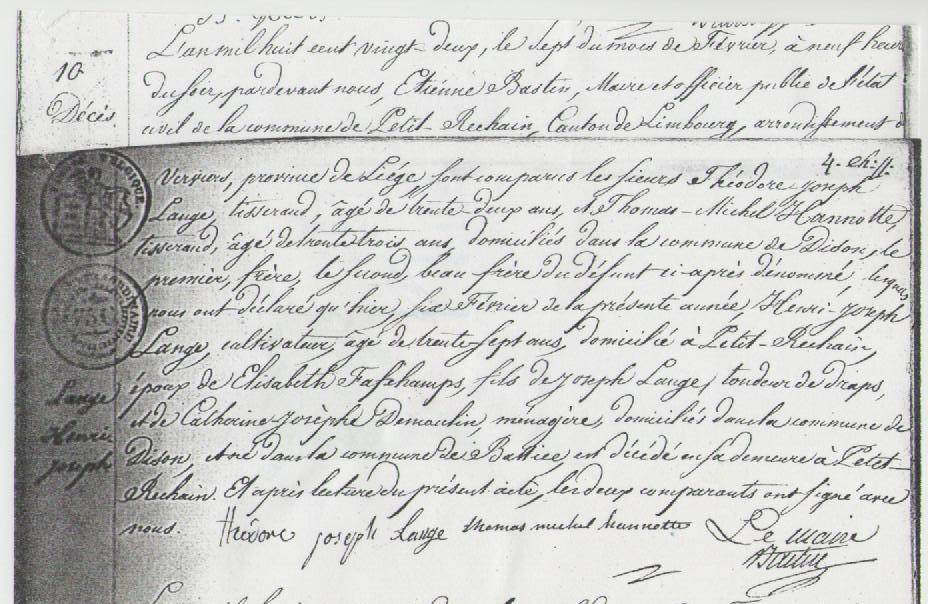 L'an mil huit cent vingt-deux, le sept du mois de Février, à neuf heur
10
du soir, pardevant nous, Etienne Bastin, Maire et officier public de l'état
Décès
civil de la commune de Petit-Rechain, Canton de Limbourg, arrondissement
4.
Verviers, province de Liége sont comparus les sieurs Théodore joseph
Lange, tisserand, âgé de trente deux ans, et Thomas-Michel Hannotte,
tisserand, âgé de trente trois ans, domiciliés dans la commune de Dison, le
premier, frère, le second, beau-frère du défunt ci-après dénommé, lesquels
nous ont déclaré qu'hier, six Février de la présente année, Henri-joseph
Lange, cultivateur, âgé de trente-sept ans, domicilié à Petit-Rechain,
époux de Elisabeth Fafchamps, fils de joseph Lange, tondeur de draps,
Lange
et de Catherine-josèphe Demoulin, ménagère, domiciliés dans la commune de
Henri
Dison, et né dans la commune de Battice est décédé en sa demeure à Petit-
joseph
Rechain. Et après lecture du présent acte, les deux comparants ont signé avec
nous.
théodore joseph Lange thomas michel hannotte Le Maire